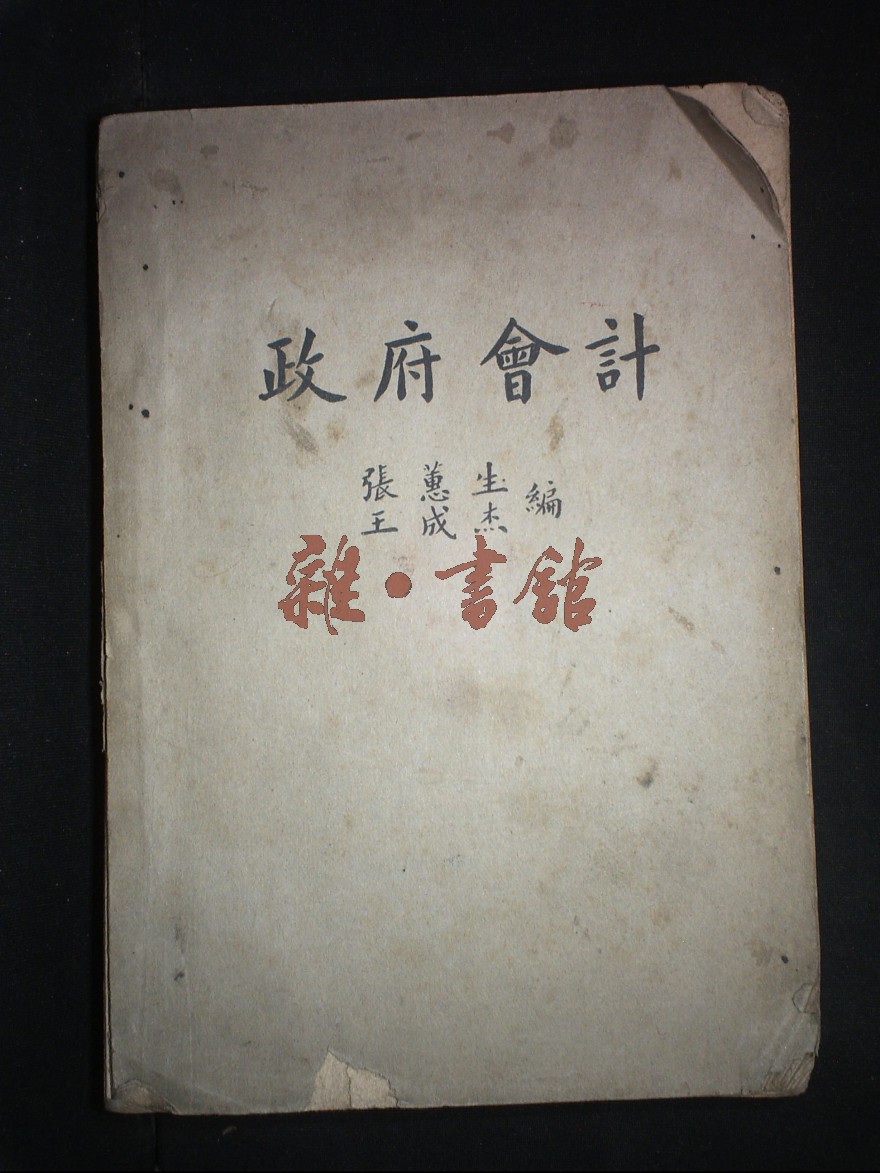 政府會計
張蕙生
王成杰 編
雜·書館